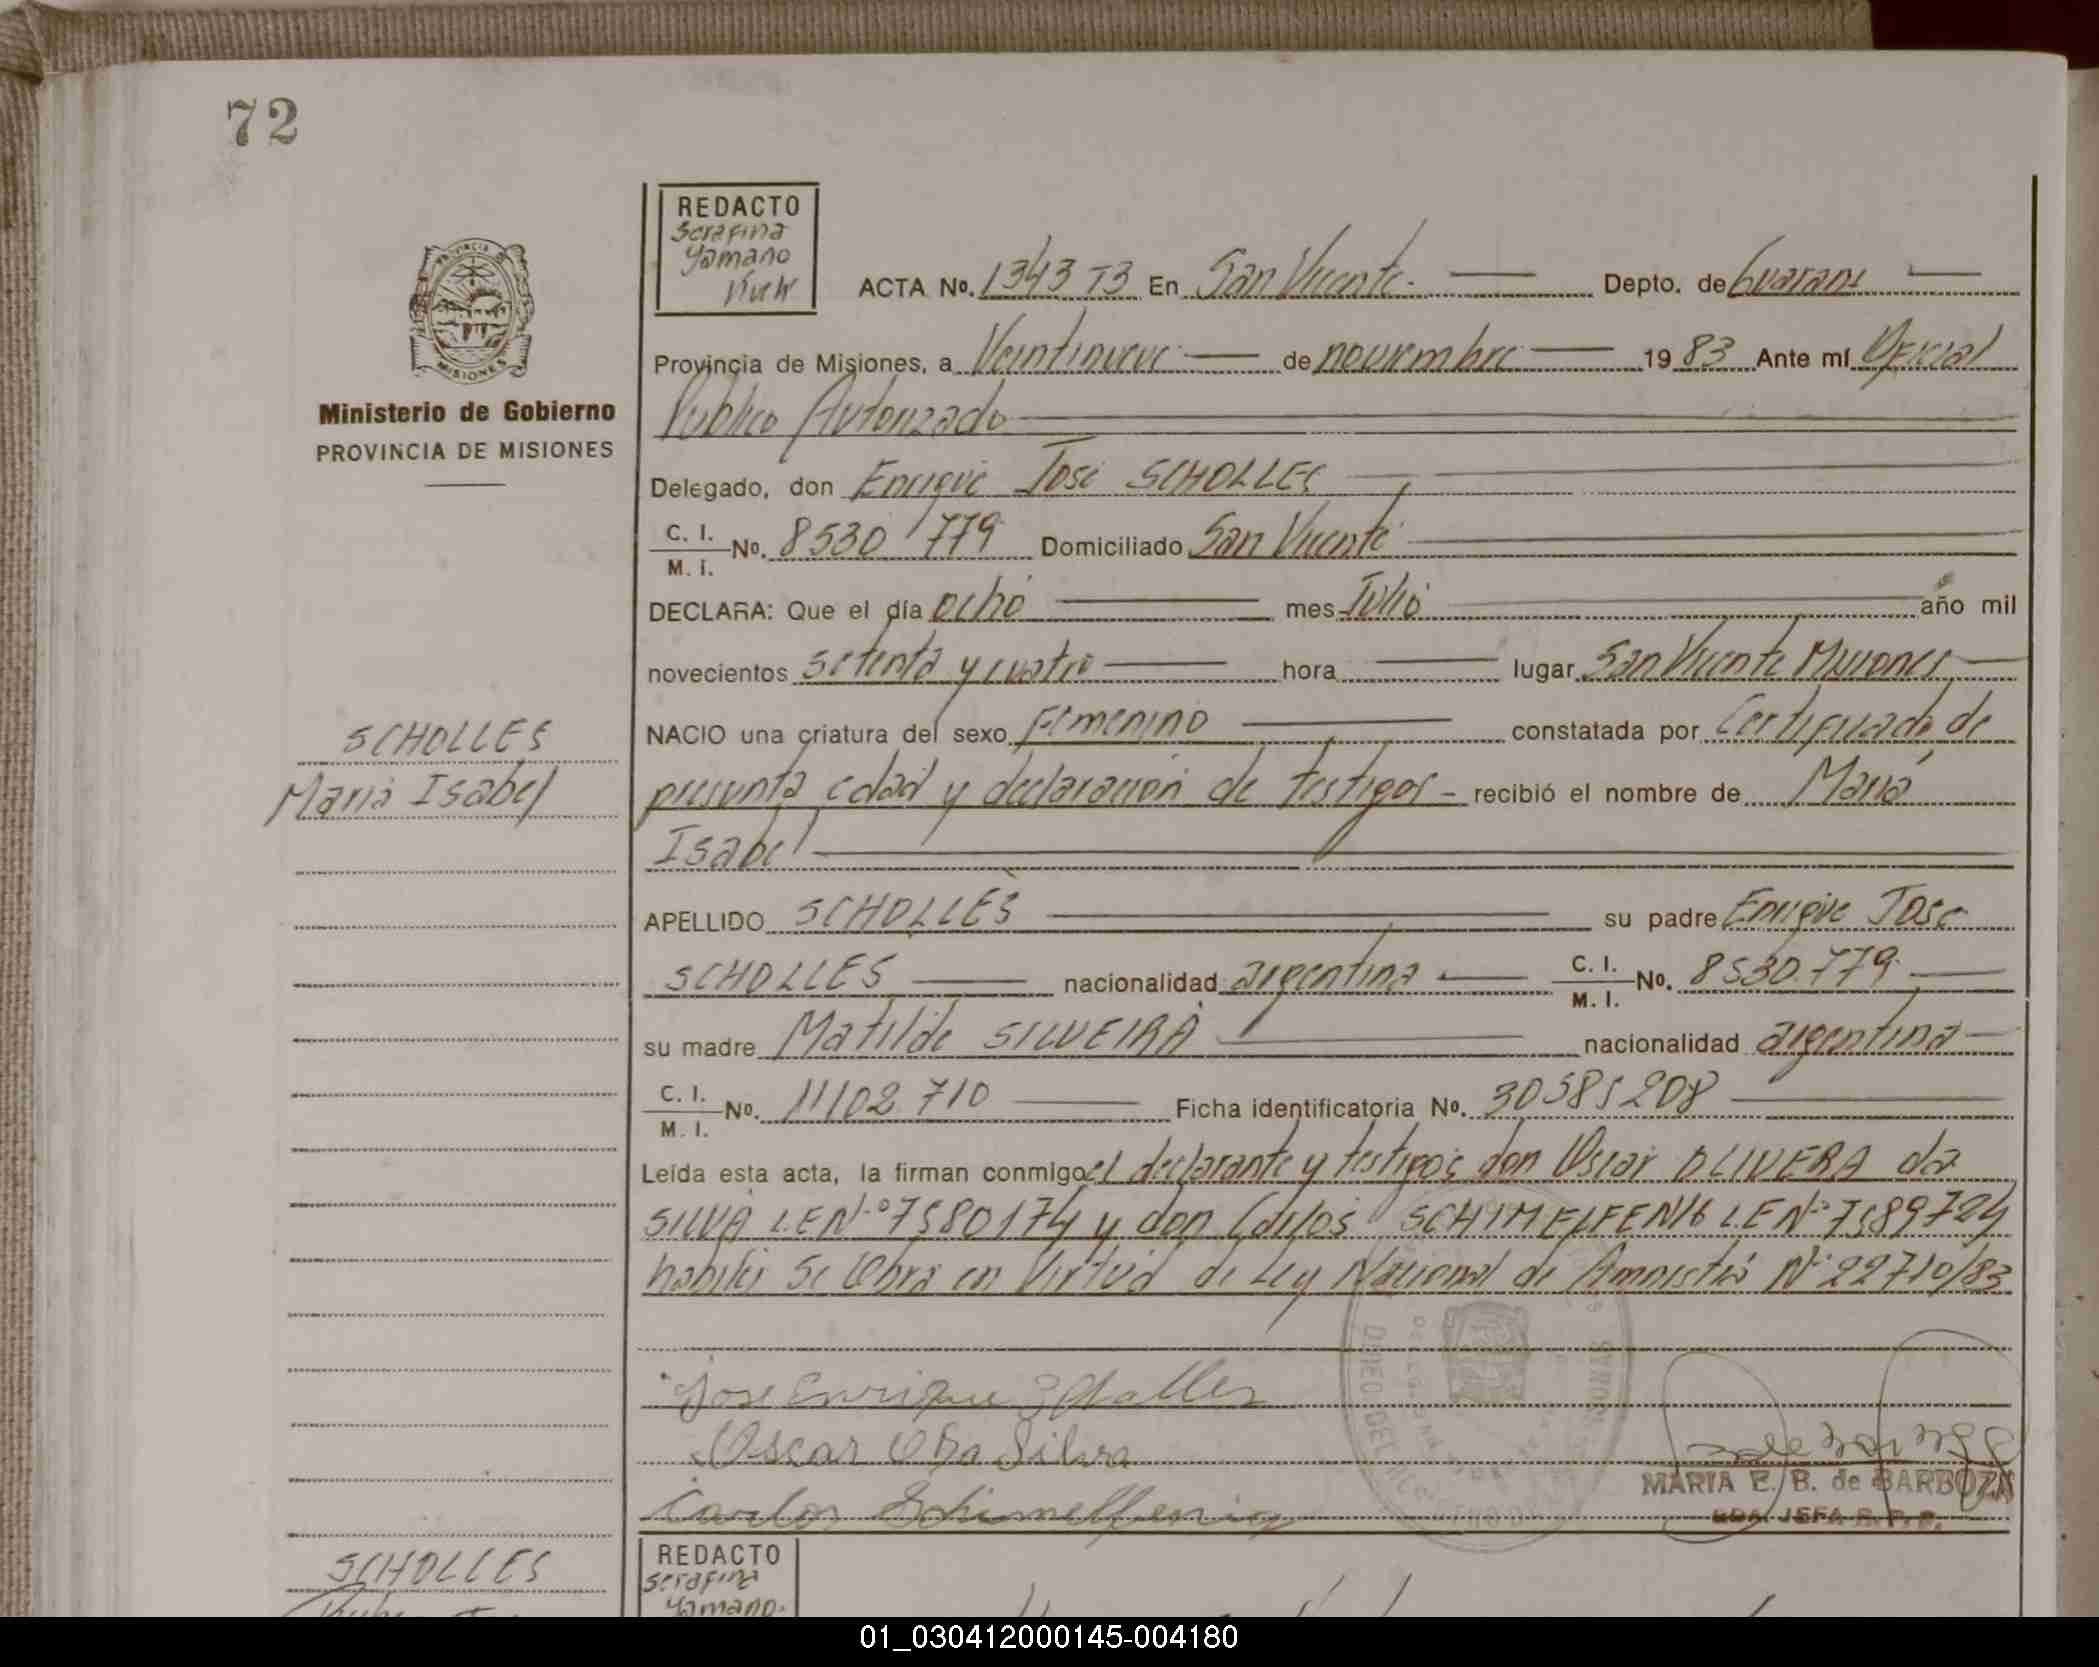 72
REDACTO
Serafina
Yamano
PROVINCIA DE
MISIONES
Ministerio de Gobierno
PROVINCIA DE MISIONES
ACTA No. 1343 T3 En San Vicente. Depto. de Guarani
Provincia de Misiones, a Veintinueve de noviembre 1983 Ante mí Oficial
Publico Autorizado
Delegado, don Enrique José SCHOLLES
C. I.
M. I. No. 8530 779 Domiciliado San Vicente
DECLARA: Que el día ocho mes Julio año mil
novecientos setenta y cuatro hora lugar San Vicente Misiones
NACIO una criatura del sexo Femenino constatada por Certificado de
presunta edad y declaración de testigos - recibió el nombre de María
Isabel
SCHOLLES
María Isabel
APELLIDO SCHOLLES su padre Enrique José
SCHOLLES nacionalidad argentina C. I.
M. I. No. 8530.779
su madre Matilde SILVEIRA nacionalidad argentina
C. I.
M. I. No. 11102.710 Ficha identificatoria No. 30585208
Leída esta acta, la firman conmigo el declarante y testigos don Oscar OLIVERA da
SILVA L.E.Nº 7580174 y don Carlos SCHIMELFENIG L.E Nº 7589724
habiles Se Obra en Virtud de Ley Nacional de Amnistía Nº 22710/83
Jose Enrique Scholles
Oscar O Da Silva
Carlos Schimelfenig
MARIA E. B. de BARBOZA
SCHOLLES
REDACTO
Serafina
Yamano.
01_030412000145-004180